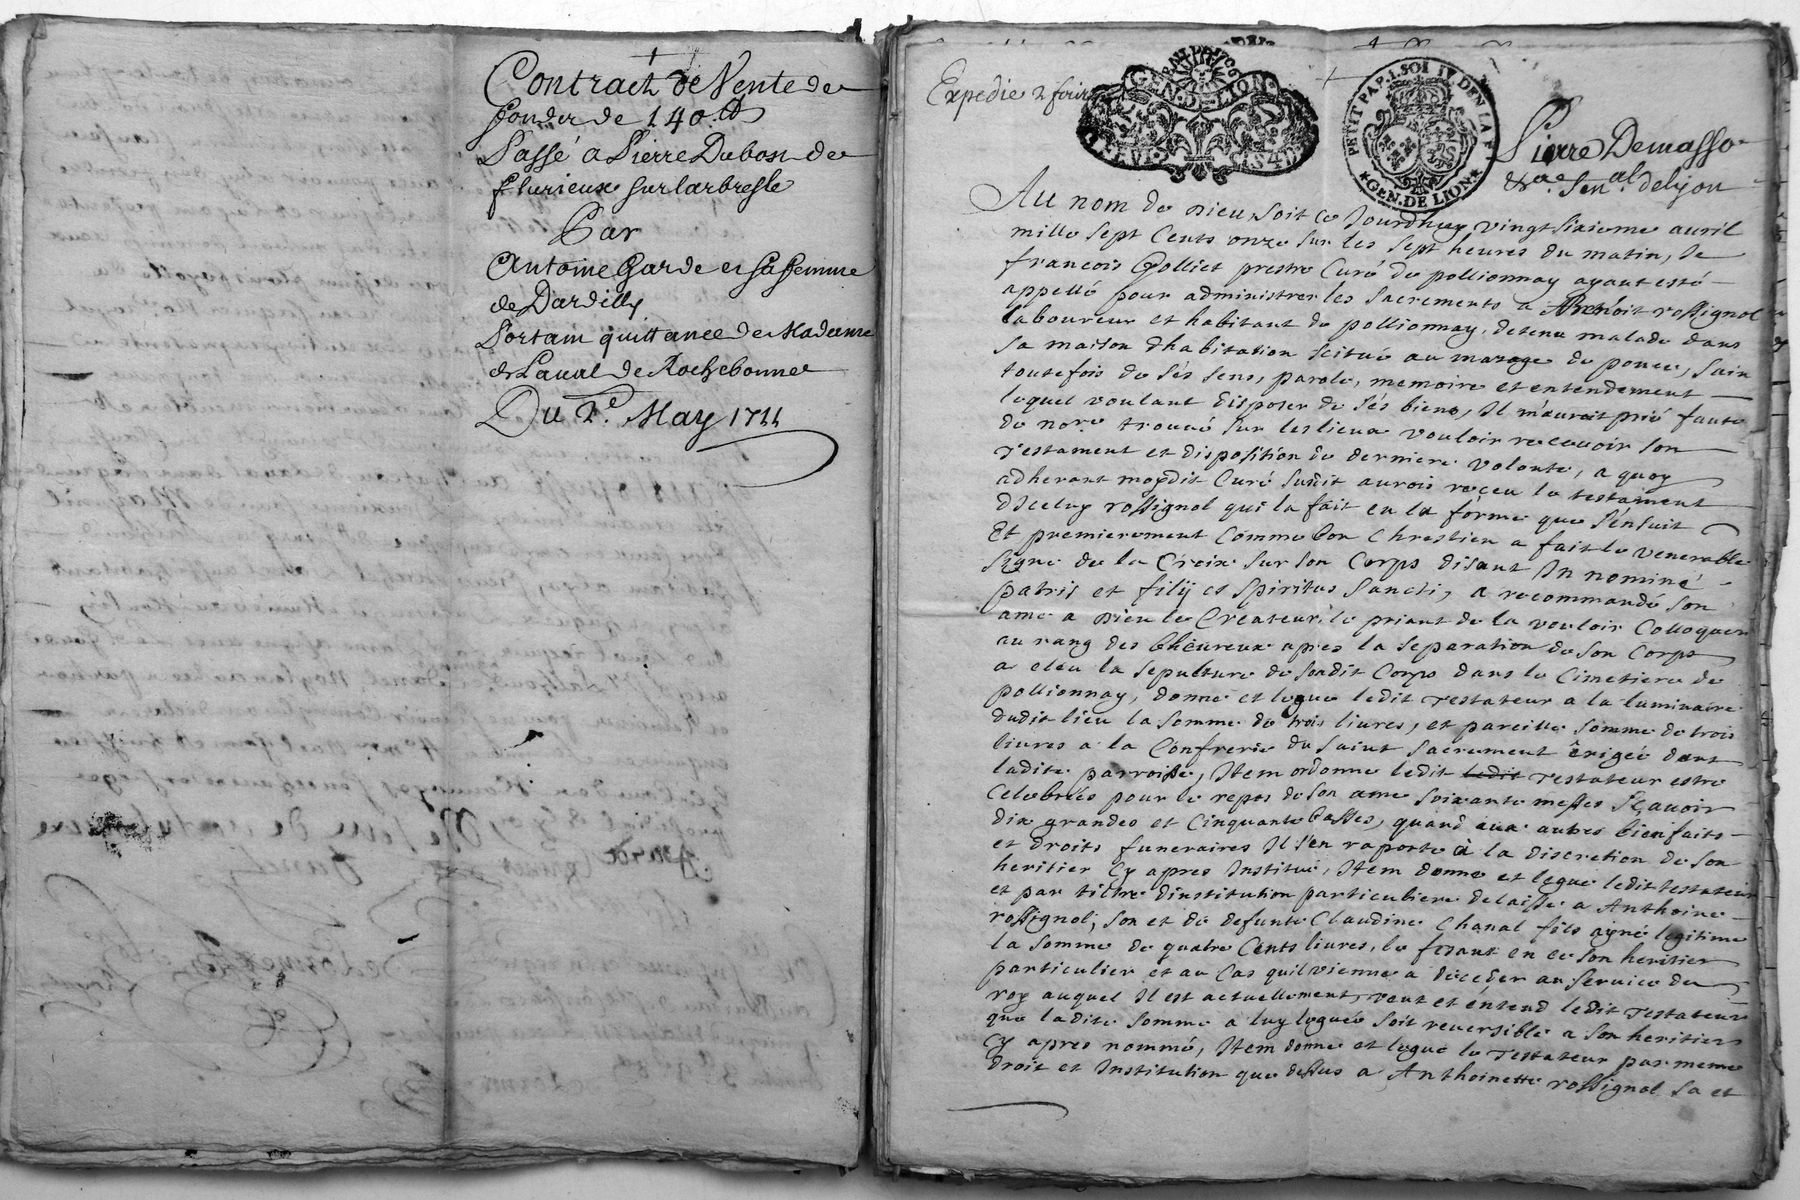 Contract de Vente de
fonder de 140 ld
Passé a Pierre Dubost de
flurieux sur larbresle
Par
Antoine Garde et sa femme
de Dardilly
Portant quittance de Madame
de Laval de Rochebonne
Du 2e. May 1711
Expedie 2 fois
GEN. DE LION
PETIT PAP. 1. SOL IV. DEN. LA F
GEN. DE LION
Pierre Demasso
delyon
Au nom de Dieu, soit ce Jourdhuy vingt sixieme avril
mille sept Cents onze sur les sept heures du matin, Je
francois Golliet prestre Curé de pollionnay ayant esté
appellé pour administrer les sacrements a Benoit rossignol
laboureur et habitant de pollionnay, detenu malade dans
sa maison dhabitation scitué au mazage de ponce, sain
toutefois de sés sens, parole, memoire et entendement
lequel voulant disposer de sés biens, Il m'auroit prié faute
de nore. trouvé sur les lieux vouloir recevoir son
Testament et disposition de derniere volonté, a quoy
adherant moydit Curé susdit aurois receu le testament
dIceluy rossignol qui la fait en la forme que s'énsuit
Et premierement Comme bon Chrestien a fait le venerable
signe de la Croix sur son Corps disant In nominé
patris et filÿ et spiritus sancti, a recommandé son
ame a Dieu le Createur, le priant de la vouloir Colloquer
au rang des bheureux apres la separation de son Corps
a eleu la sepulture de sondit Corps dans le Cimetiere de
pollionnay, donne et legue ledit Testateur a la luminaire
dudit lieu la somme de trois livres, et pareille somme de trois
livres a la Confrerie du saint sacrement érigée dans
ladite parroisse, Item ordonne ledit ledit Testateur estre
Celebrées pour le repos de son ame soixante messes sçavoir
dix grandes et Cinquante basses, quand aux autres bienfaits
et droits funeraires Il s'en raporte à la discretion de son
heritier Cy apres Institué, Item donne et legue ledit testateur
et par tiltre dinstitution particuliere delaisse a Anthoine
rossignol, son et de defunte Claudine Chanal fils ayné legitime
la somme de quatre Cents livres, le fesant en ce son heritier
particulier et au Cas quil vienne a decéder au service du
roy auquel Il est actuellement, veut et éntend ledit Testateur
que ladite somme a luy leguée soit reversible a son heritier
Cy apres nommé, Item donne et legue le Testateur par meme
droit et Institution que dessus a Anthoinette rossignol sa et